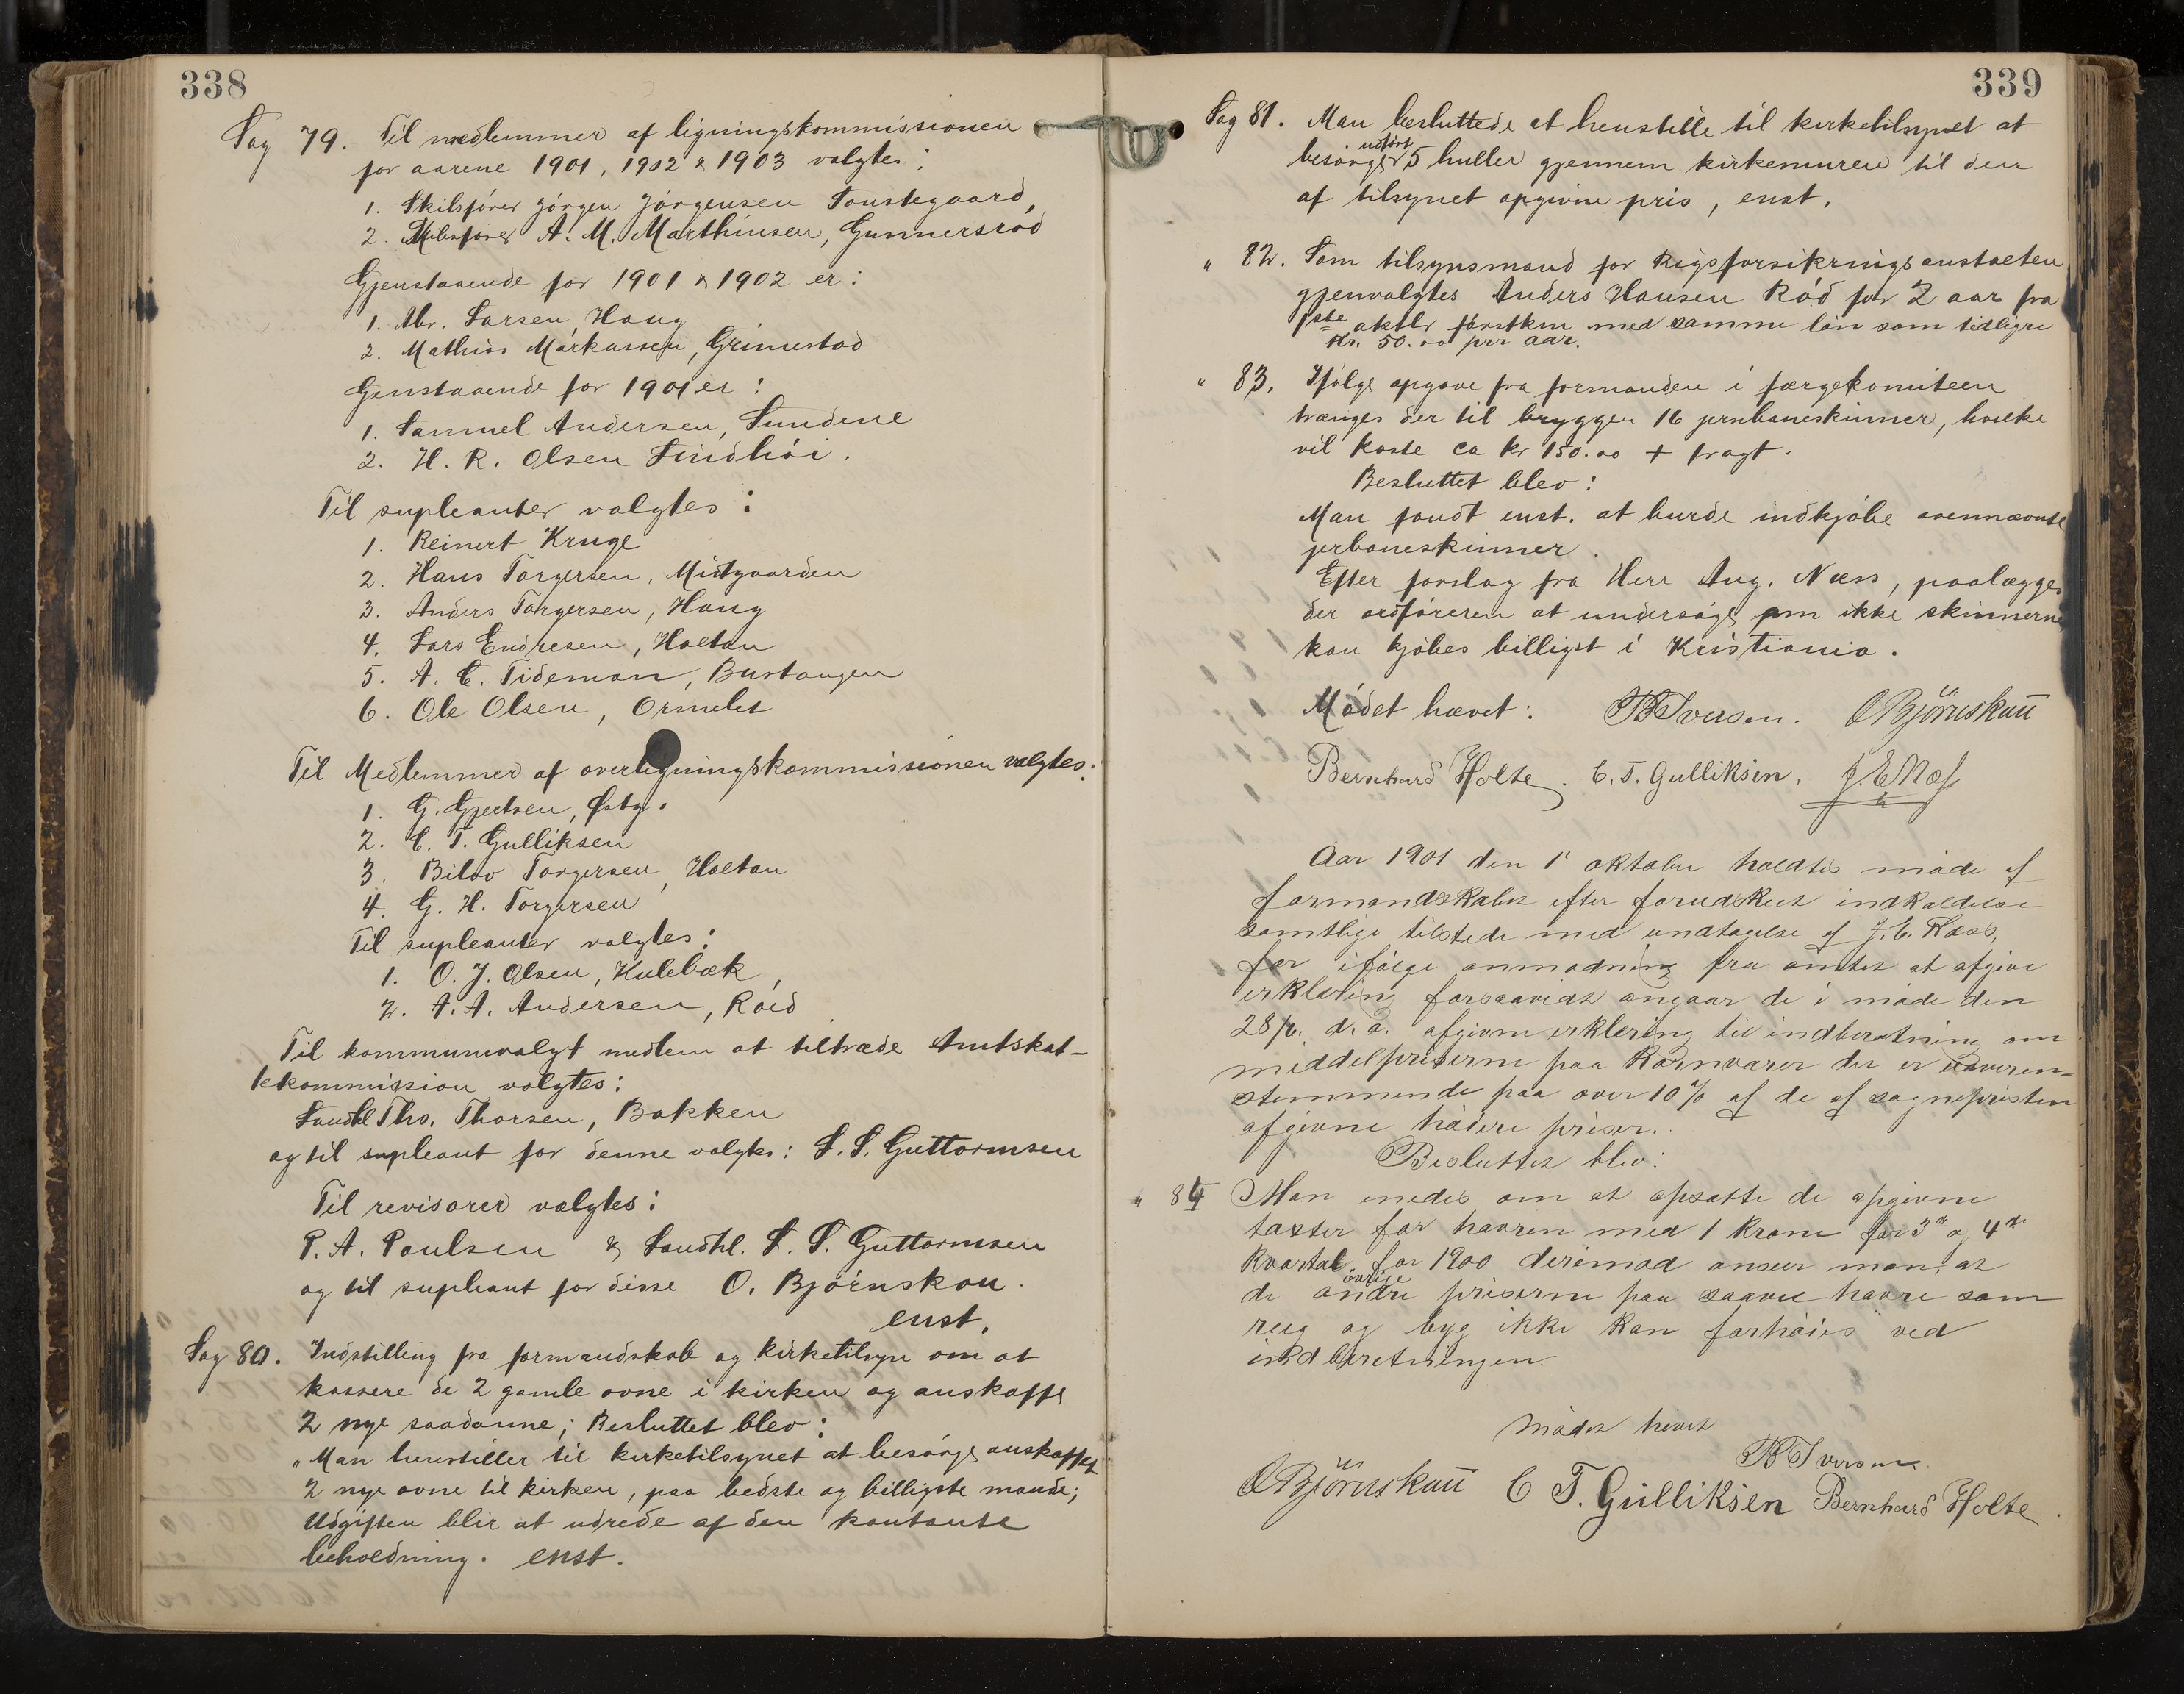 338
Sag 79. Til medlemmer af ligningskommissionen
for aarene 1901, 1902 & 1903 valgtes:
1. Skibsfører Jörgen Jörgensen Tanstegaard,
2. Skibsfører A. M. Marthinsen, Gunnersröd
Gjenstaaende for 1901 & 1902 er:
1. Abr. Larsen, Haug
2. Mathias Markussen, Grimestad
Genstaaende for 1901 er:
1. Samuel Andersen, Sundene
2. H. R. Olsen Lindhöi.
Til supleanter valgtes:
1. Reinert Kruge
2. Hans Torgersen, Midtgaarden
3. Anders Torgersen, Haug
4. Lars Endresen, Holtan
5. A. C. Tideman, Burstangen
6. Ole Olsen, Ormelet
Til Medlemmer af overligningskommissionen valgtes:
1. G. Gjertsen, Østg.
2. C. T. Gulliksen
3. Torgersen, Holtan
4. G. H. Torgersen
Til supleanter valgtes:
1. O. J. Olsen, Kulebæk,
2. A. A. Andersen, Röed
Til kommunevalgt medlem at tiltræde Amtskat-
tekommission valgtes:
Landhl Ths. Thorsen, Bakken
og til supleant for denne valgtes: S. S. Guttormsen
Til revisorer valgtes:
P. A. Paulsen & Landhl. S. S. Guttormsen
og til supleant for disse O. Bjørnskau.
enst.
Sag 80. Indstilling fra formandskab og kirketilsyn om at
kassere de 2 gamle ovne i kirken og anskaffe
2 nye saadanne; Besluttet blev:
„Man henstiller til kirketilsynet at besörge anskaffet
2 nye ovne til kirken, paa bedste og billigste maade;
Udgiften blir at udrede af den kontante
beholdning. enst.
339
Sag 81. Man besluttede at henstille til kirketilsynet at
besörge udfört 5 huller gjennem kirkemuren til den
af tilsynet opgivne pris, enst.
" 82. Som tilsynsmand for Rigsforsikringsanstalten
gjenvalgtes Anders Hansen Röd for 2 aar fra
1ste oktbr förstkm. med samme lön som tidligre
Kr. 50.00 pr aar.
" 83. Ifölge opgave fra formanden i færgekomiteen
trænges der til bryggen 16 jernbaneskinner, hvilke
vil koste ca kr 150.00 + fragt.
Besluttet blev:
Man fandt enst. at burde indkjöbe ovennævnte
jerbaneskinner.
Efter forslag fra Herr Aug. Næss, paalægges
der ordföreren at undersöge om ikke skinnerne
kan kjöbes billigst i Kristiania.
Mödet hævet: B Iversen. O Björnskau
Bernhard Holte. C. T. Gulliksen. J. E Næss
Aar 1901 den 1' oktober holdtes möde af
formandskabet efter forudskeet indkaldelse
samtlige tilstede med undtagelse af J. E. Næss,
for ifölge anmodning fra amtet at afgive
erklæring forsaavidt angaar de i möde den
d. a. afgivne erklæring til indberetning om
middelpriserne paa Kornvarer der er uoveren-
stemmende paa over 10 % af de af sognepresten
afgivne höiere priser.
Besluttet blev:
" 84 Man enedes om at opsætte de opgivne
taxter for havren med 1 Krone for 3de og 4de
Kvartal for 1900 derimod anser man, at
de andre övrige priserne paa saavel havre som
rug og byg ikke kan forhöies ved
indberetningen.
Mödet hævet
B Iversen.
O Björnskau C T. Gulliksen Bernhard Holte.